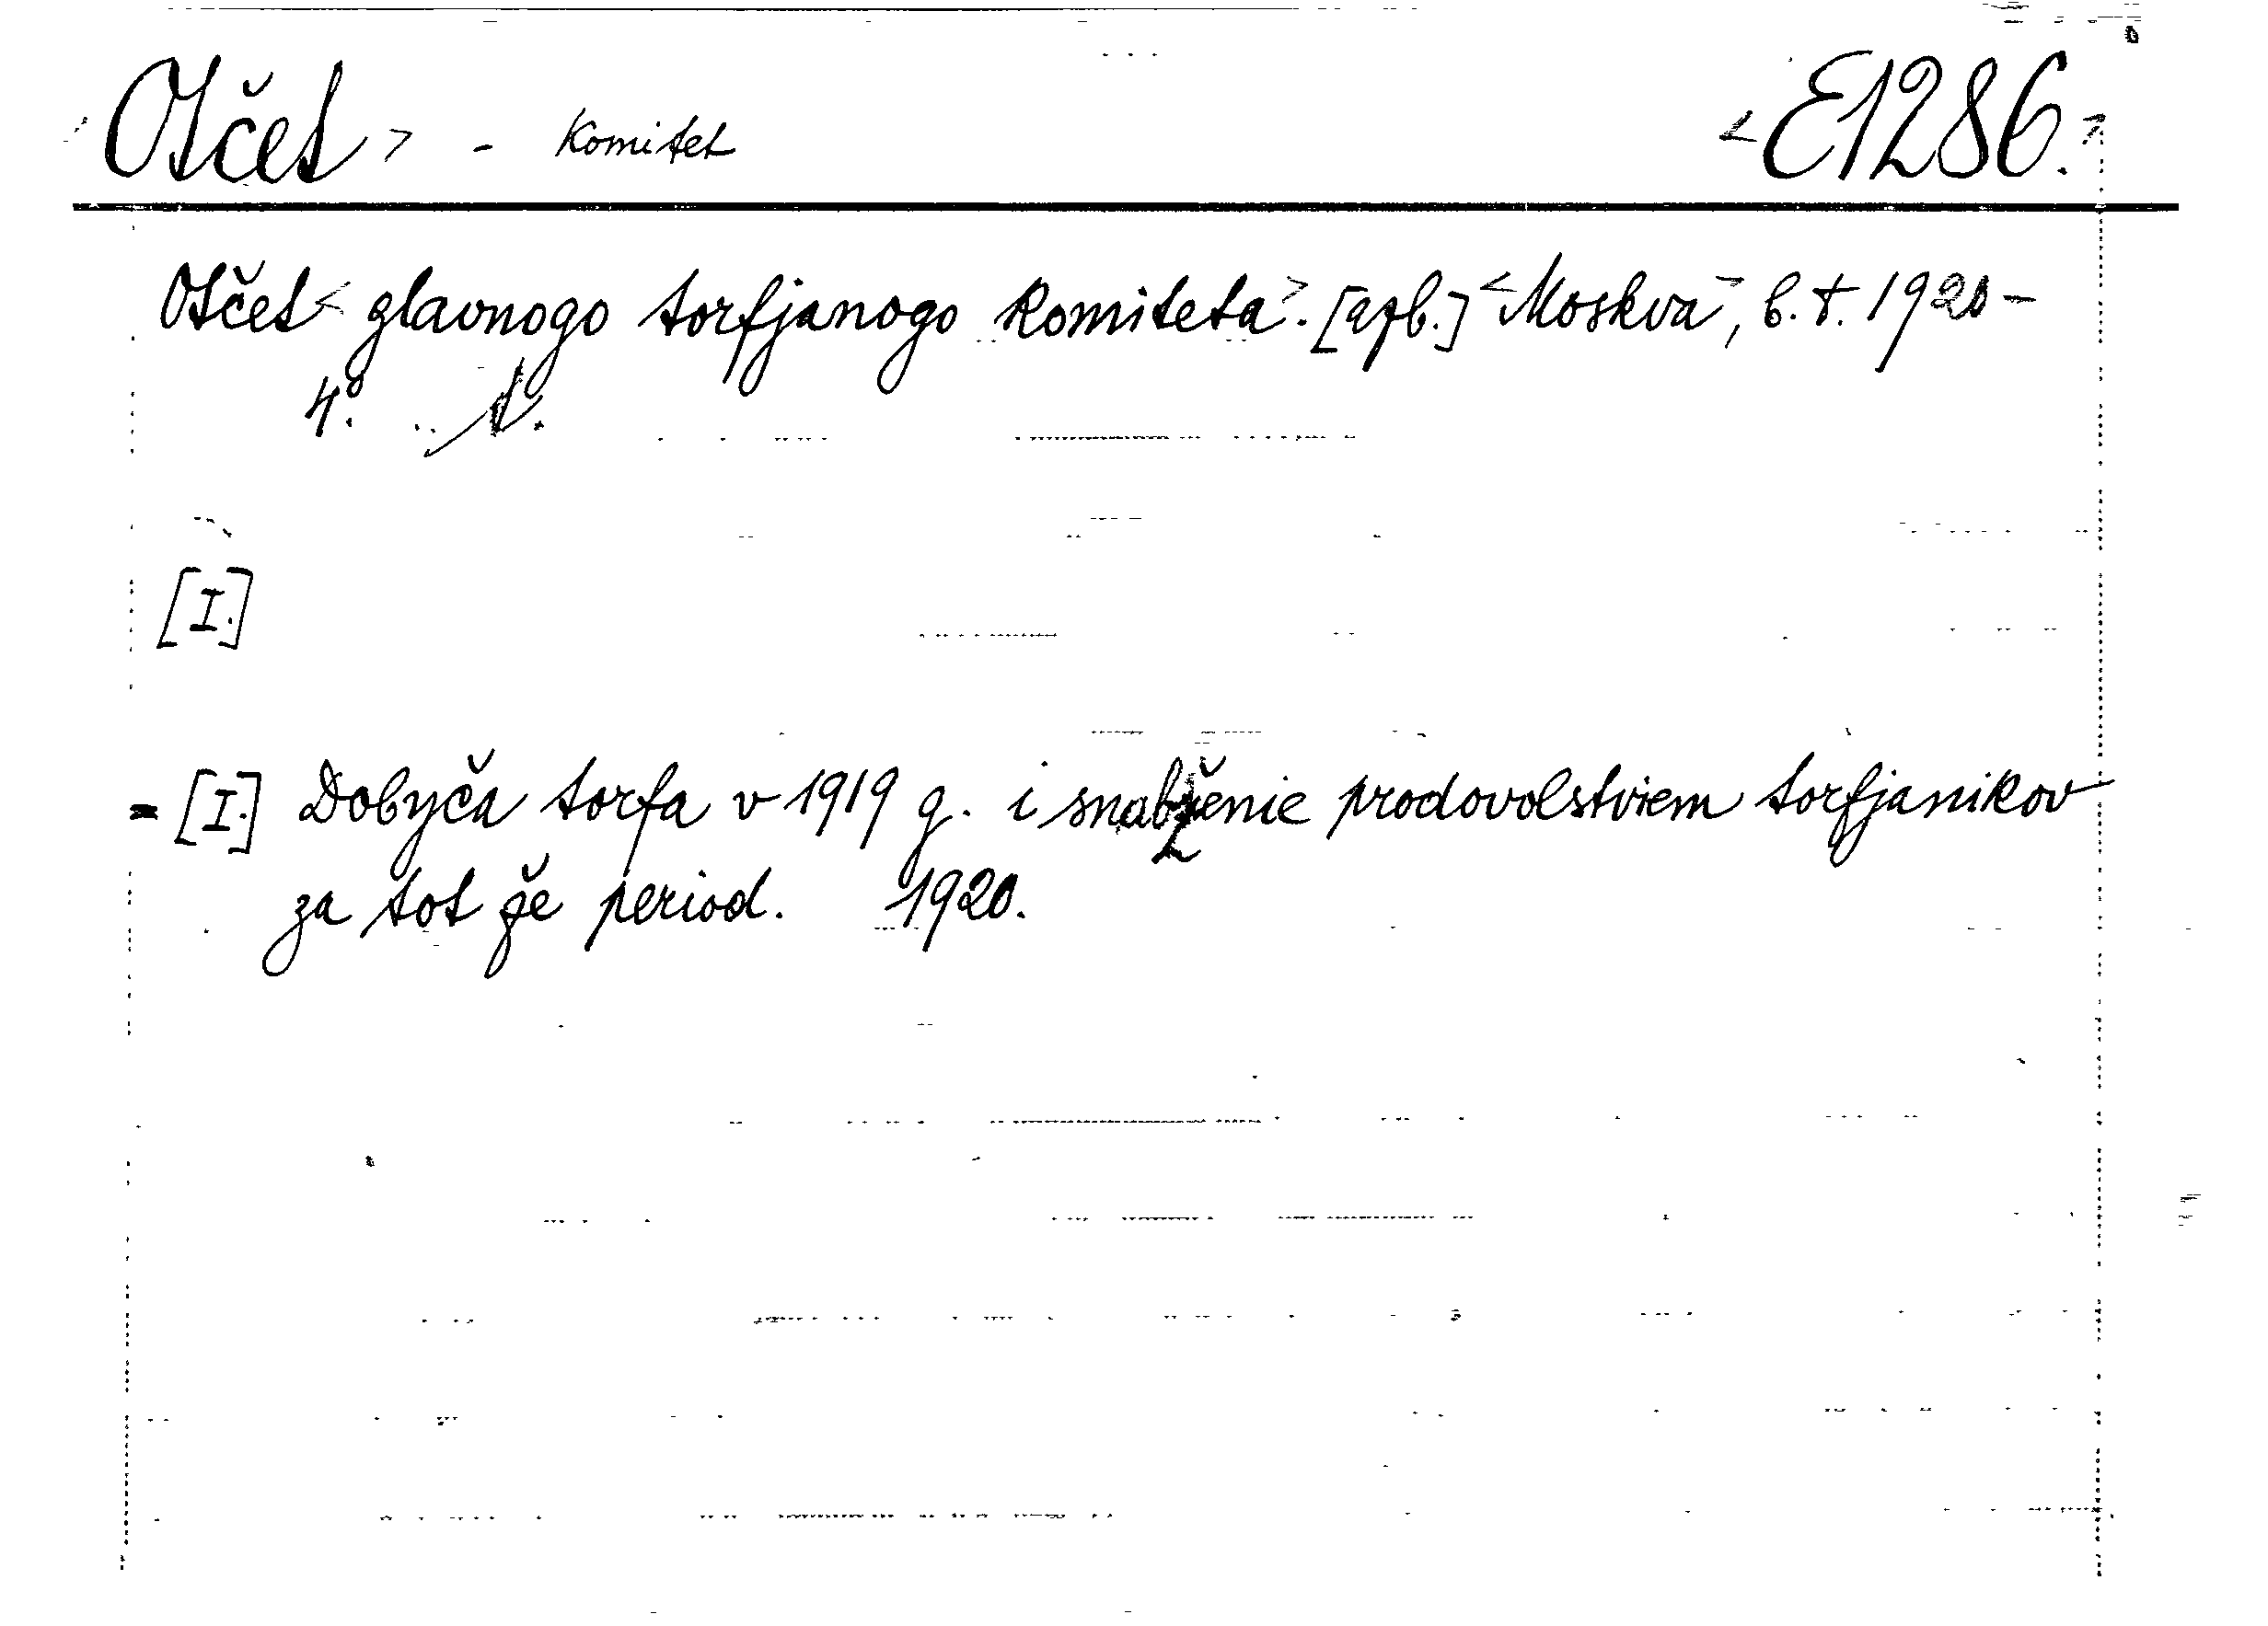 Otčet > - Komitet <E1286.>
Otčet < glavnogo torfjanogo komiteta>. [azb.] <Moskva>, b. t. 1920-
4°.
[I.]
= [I.] Dobyča torfa v 1919 g. i snabženie prodovolstviem torfjanikov
za tot že period. 1920.